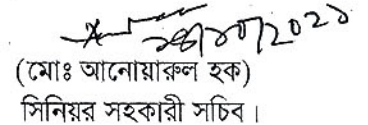 ২৪/১০/২০২১
(মোঃ আনোয়ারুল হক)
সিনিয়র সহকারী সচিব।